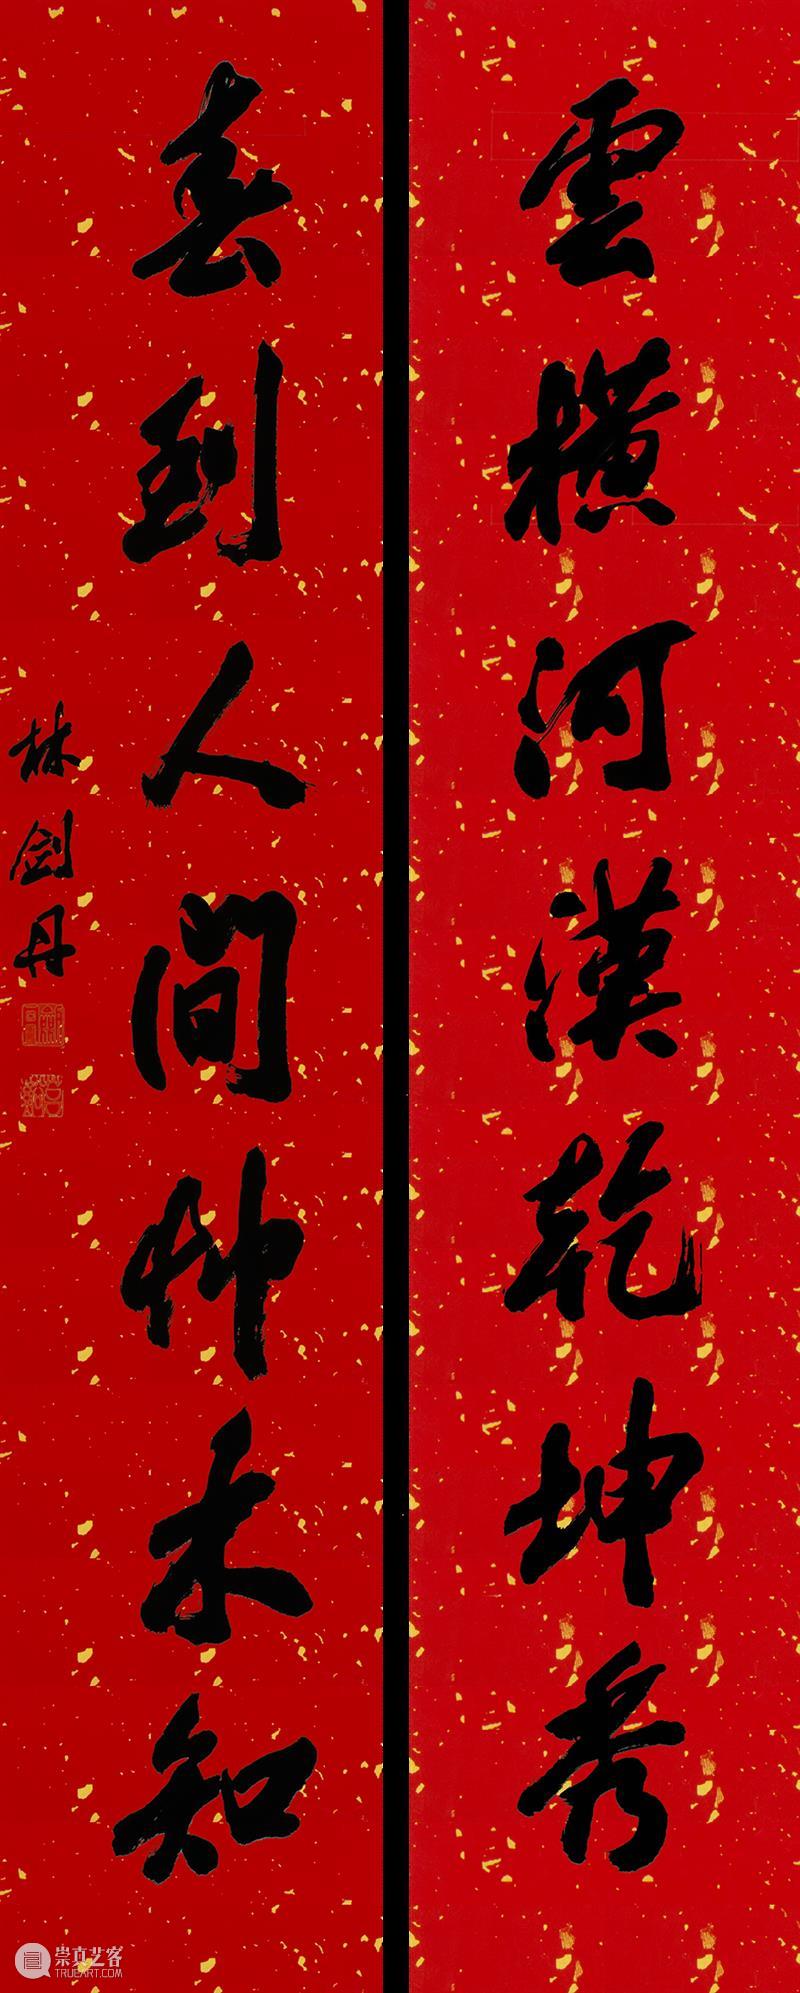 雲橫河漢乾坤秀
春到人間艸木知
林劍丹
崇真艺客
TRUEART.COM